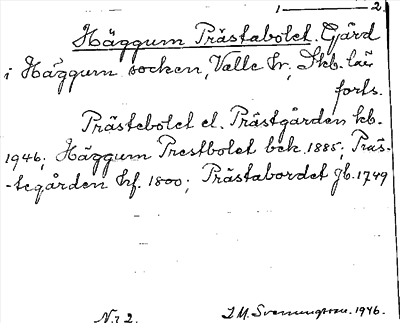 1 — 2
Häggum Prästabolet. Gård
i Häggum socken, Valle hr, Skb. län
forts.
Prästebolet el. Prästgården kb.
1946; Häggum Prestbolet bek. 1885; Präs-
-tegården hf. 1800; Prästabordet jb. 1749
N:r 2. I. M. Svenungsson. 1946.